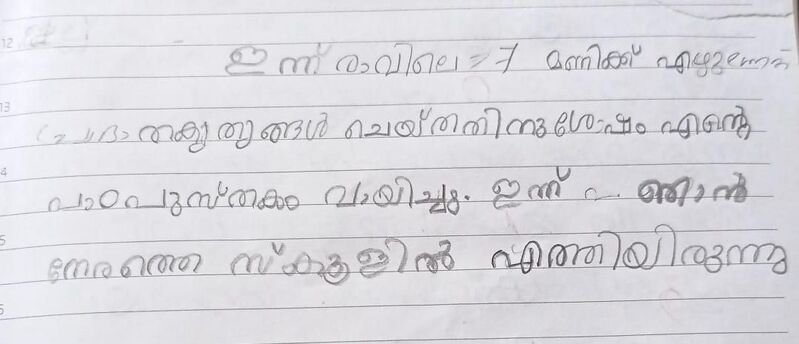 ഇന്ന് രാവിലെ 7 മണിക്ക് എഴുന്നേറ്റ്
പ്രഭാതകൃത്യങ്ങൾ ചെയ്തതിനുശേഷം എന്റെ
പാഠപുസ്തകം വായിച്ചു. ഇന്ന് ഞാൻ
നേരത്തെ സ്കൂളിൽ എത്തിയിരുന്നു